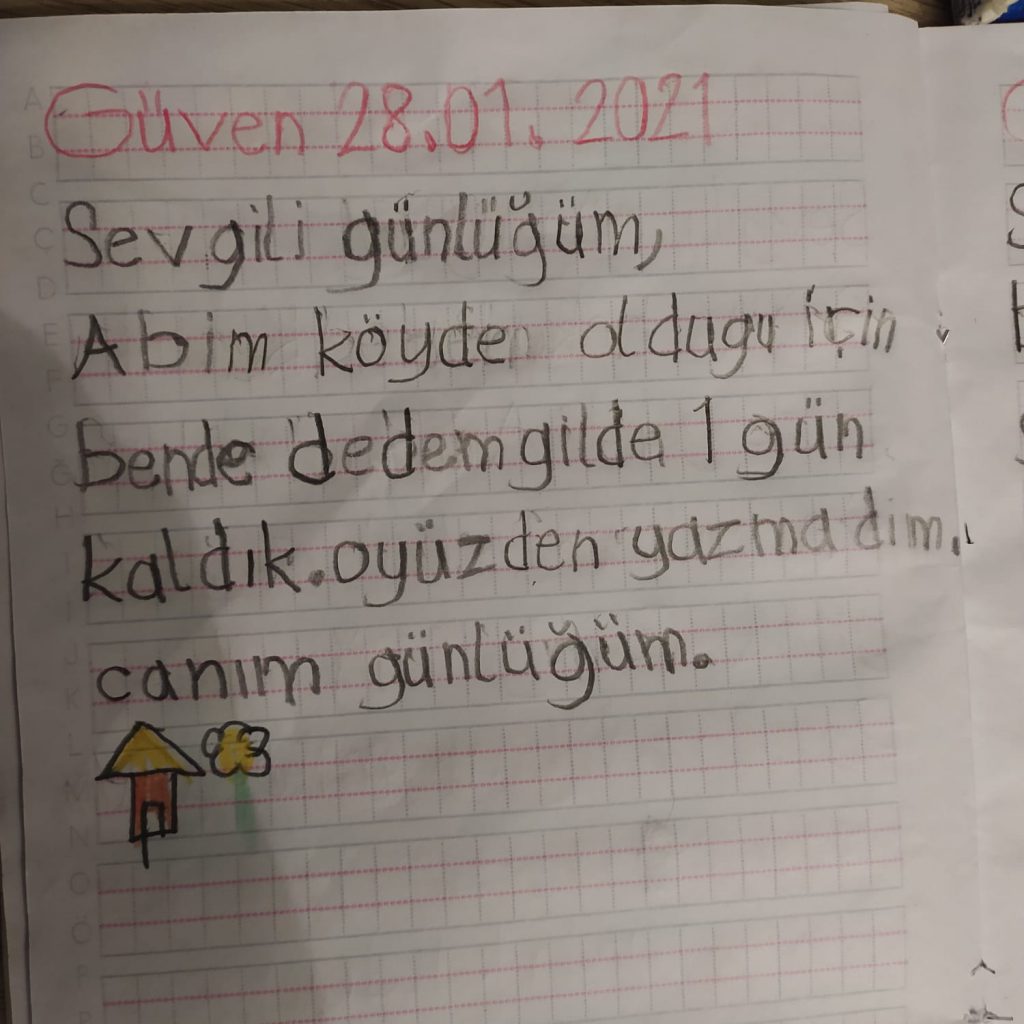 Güven 28.01.2021
Sevgili günlüğüm,
Abim köyde oldugu için
bende dedemgilde 1 gün
kaldık. oyüzden yazmadım.
canım günlüğüm.